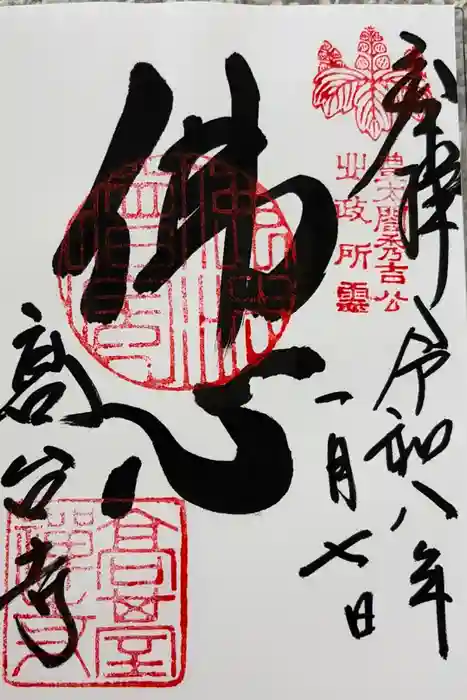 奉拝
令和八年
一月七日
豊太閤秀吉公
北政所霊
佛心
高台寺
高臺禅寺